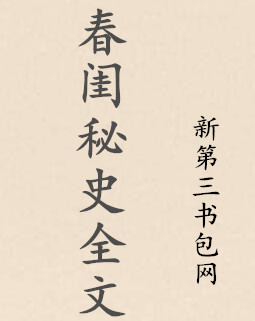 春闺秘史全文
新第三书包网